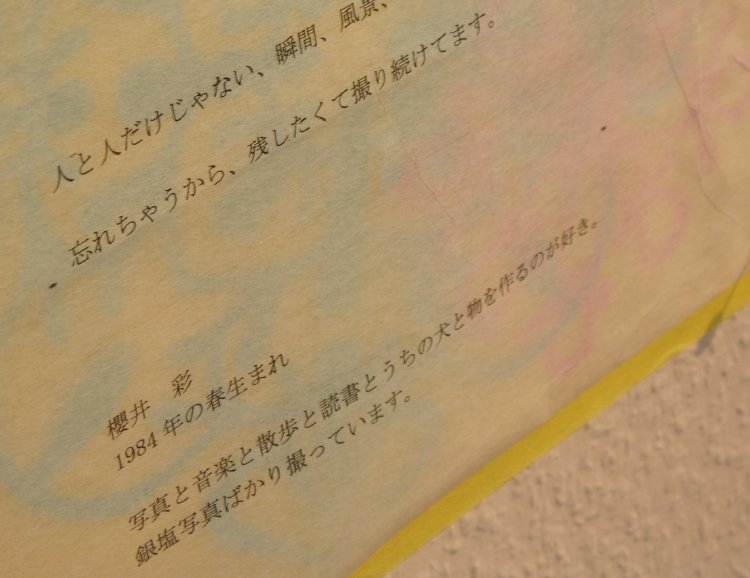 人と人だけじゃない、瞬間、風景、
忘れちゃうから、残したくて撮り続けてます。
櫻井 彩
1984 年の春生まれ
写真と音楽と散歩と読書とうちの犬と物を作るのが好き。
銀塩写真ばかり撮っています。